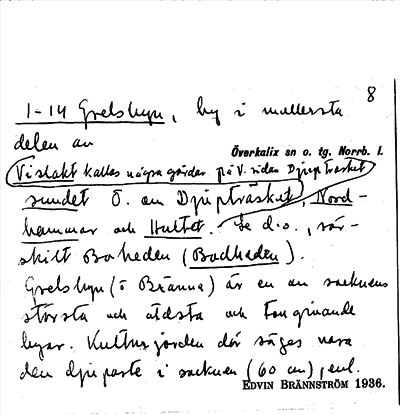 8
1-14 Grelsbyn, by i mellersta
delen av
Överkalix sn o. tg. Norrb. l.
Vislakt kallas några gårdar på V. sidan Djupträsket
sundet Ö. om Djupträsket, Nord-
hammar och Hultet. Se d:o., sär-
skilt Boheden (Bodheden).
Grelsbyn (i Bränna) är en av socknens
största och äldsta och
byar. Kulturjorden där säges vara
den djupaste i socknen (60 cm), enl.
EDVIN BRÄNNSTRÖM 1936.